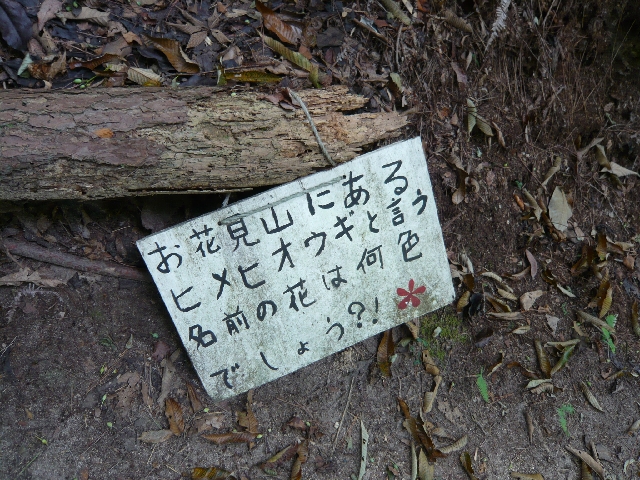 お花見山にある
ヒメヒオウギと言う
名前の花は何色
でしょう?!